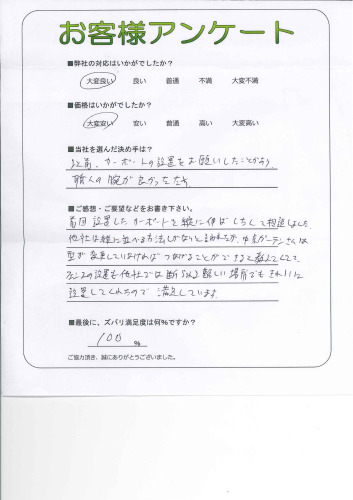 お客様アンケート
■弊社の対応はいかがでしたか?
大変良い 良い 普通 不満 大変不満
■価格はいかがでしたか?
大変安い 安い 普通 高い 大変高い
■当社を選んだ決め手は?
以前、カーポートの設置をお願いしたことがあり
職人の腕が良かったため
■ご感想・ご要望などをお書き下さい。
前回設置したカーポートを縦に伸ばしたくて相談しました
他社は縦に並べる方法しかないと言われたが、ガーデンさんは
型が変更していなければつなげることができると教えてくれて
フェンスの設置も他社では断られる難しい場所でもきれいに
設置してくれたので満足しています。
■最後に、ズバリ満足度は何%ですか?
100 %
ご協力頂き、誠にありがとうございました。